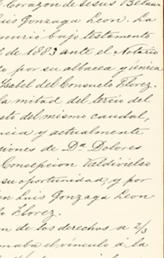 Corazon de Jesus Belau
Luis Gonzaga Leon. La
murió bajo testamento
de 1883 ante el Notario
por su albacea y única
Isabel del Consuelo Florez.
la mitad del tercio del
esto del mismo caudal,
y actualmente
ciones de Dª Dolores
Concepcion Valdivieles
su oportunidad, y por
Luis Gonzaga Leon
Florez.
on de los derechos a 2/3
el vínculo á la